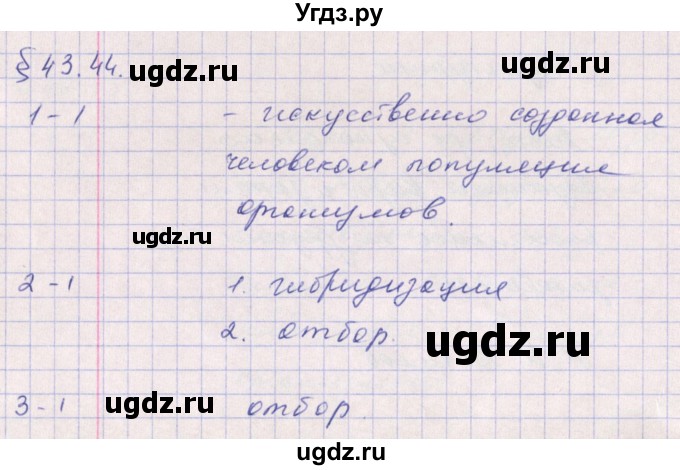 Угдз.ру
§ 43.44.
ugdz.ru
ugdz.ru
1-1 - искусственно созданная
человеком популяция
организмов.
ugdz.ru
2-1 1. гибридизация
2. отбор.
ugdz.ru
3-1 отбор.
ugdz.ru
ugdz.ru